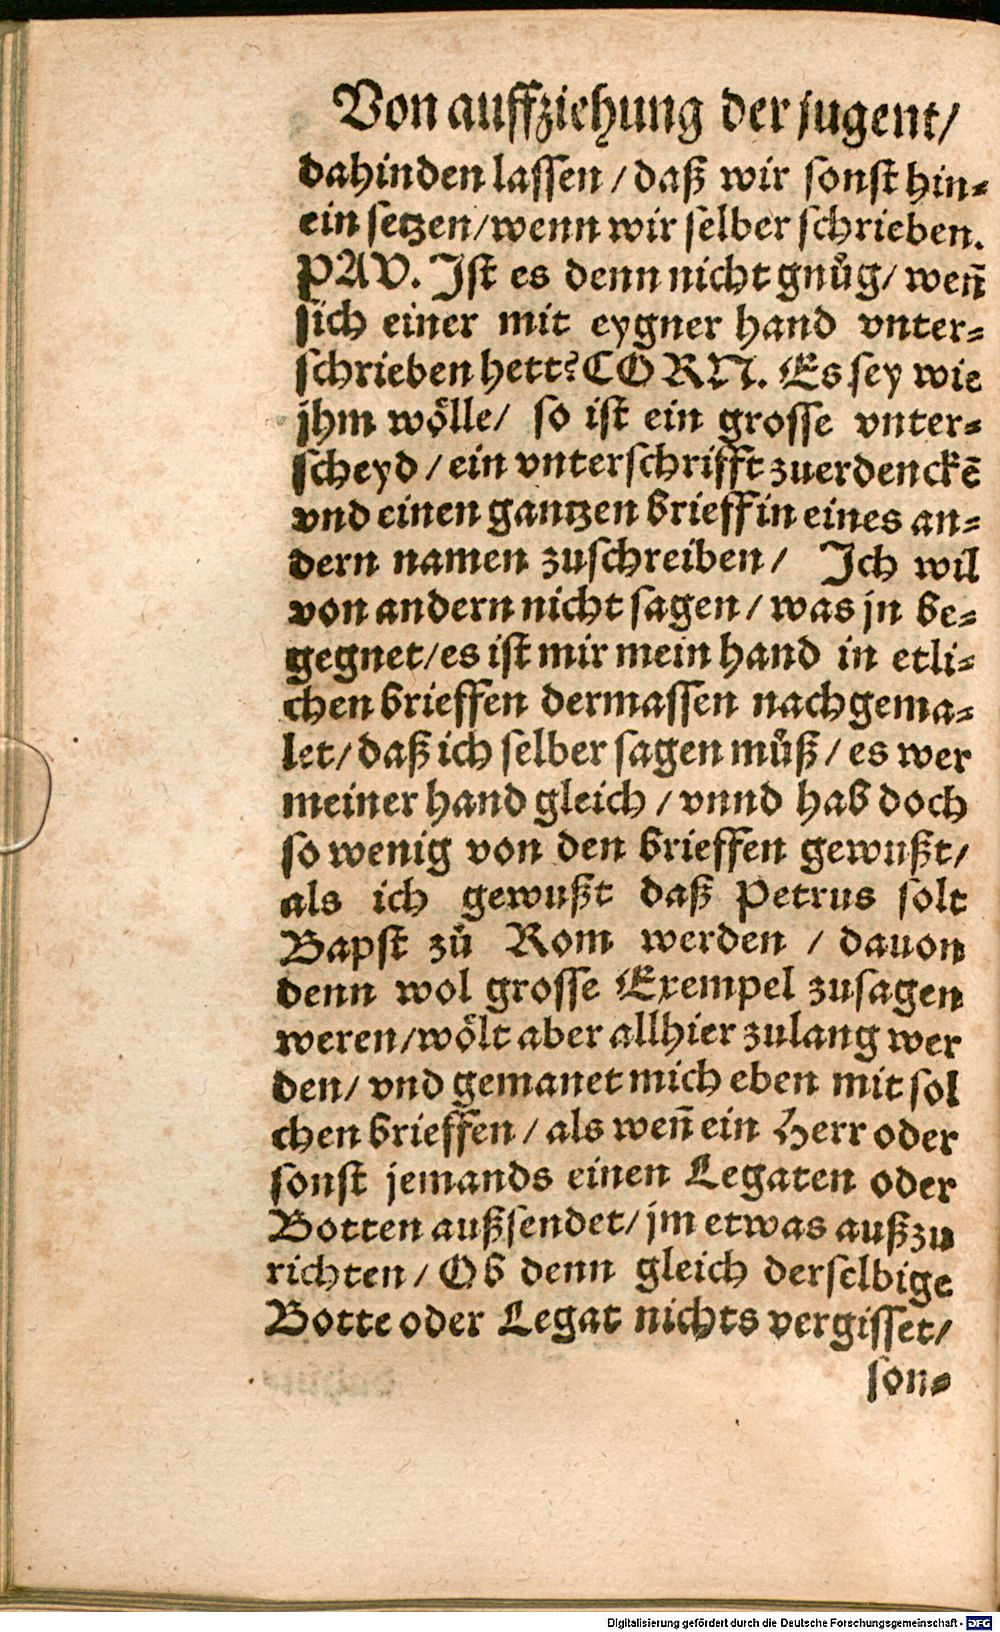 Von auffziehung der jugent/
dahinden lassen / daß wir sonst hin⸗
ein setzen/wenn wir selber schrieben.
PAV. Ist es denn nicht gnůg/ weñ
sich einer mit eygner hand vnter⸗
schrieben hett? CORN. Es sey wie
jhm wölle/ so ist ein grosse vnter⸗
scheyd / ein vnterschrifft zuerdenckē
vnd einen gantzen brieff in eines an⸗
dern namen zuschreiben / Ich wil
von andern nicht sagen / was jn be⸗
gegnet/es ist mir mein hand in etli⸗
chen brieffen dermassen nachgema⸗
let/ daß ich selber sagen můß / es wer
meiner hand gleich / vnnd hab doch
so wenig von den brieffen gewußt/
als ich gewußt daß Petrus solt
Bapst zů Rom werden / dauon
denn wol grosse Exempel zusagen
weren/wölt aber allhier zulang wer
den/ vnd gemanet mich eben mit sol
chen brieffen / als weñ ein Herr oder
sonst jemands einen Legaten oder
Botten außsendet/ jm etwas außzu
richten / Ob denn gleich derselbige
Botte oder Legat nichts vergisset/
son⸗
Digitalisierung gefördert durch die Deutsche Forschungsgemeinschaft - DFG